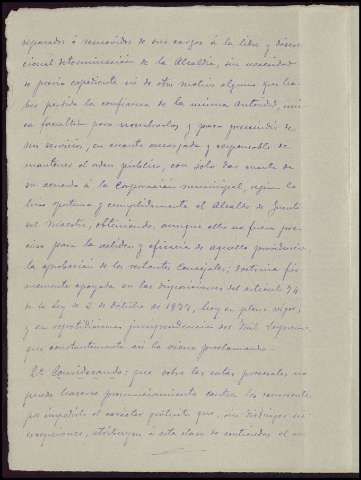 separados ó removidos de sus cargos á la libre y discre-
cional determinación de la Alcaldía, sin necesidad
de previo expediente ni de otro motivo alguno que ha-
ber perdido la confianza de la misma Autoridad, única
facultad para nombrarlos y para prescindir de
sus servicios, en cuanto encargada y responsable de
mantener el orden público, con solo dar cuenta de
su acuerdo á la Corporación municipal, según lo
hizo oportuna y cumplidamente el Alcalde de Fuente
del Maestre, obteniendo, aunque ello no fuera pre-
ciso para la validez y eficacia de aquella providencia
la aprobación de los restantes Concejales; doctrina fir-
memente apoyada en las disposiciones del artículo 74
de la Ley de 2 de Octubre de 1877, hoy en pleno vigor,
y en repetidísima jurisprudencia del Tribl Supremo,
que constantemente así la viene proclamando.
Considerando: que sobre las costas procesales no
puede hacerse pronunciamiento contra los recurrentes
por impedirlo el carácter gratuito que, sin distingos ni
excepciones, atribuyen á esta clase de contiendas el ar-